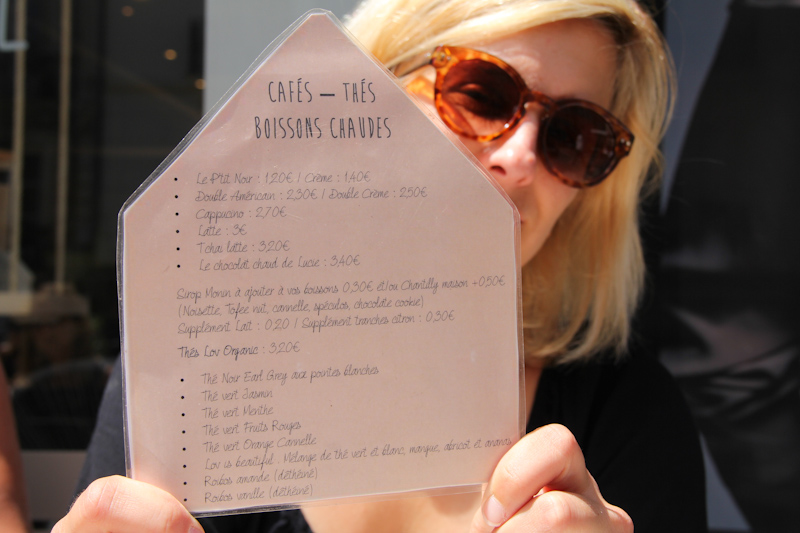 CAFÉS – THÉS
BOISSONS CHAUDES
• Le P'tit Noir : 1,20€ / Crème : 1,40€
• Double Américain : 2,30€ / Double Crème : 2,50€
• Cappucino : 2,70€
• Latte : 3€
• Tchaï latte : 3,20€
• Le chocolat chaud de Lucie : 3,40€
Sirop Monin à ajouter à vos boissons 0,30€ et/ou Chantilly maison +0,50€
(Noisette, Tofee nut, cannelle, spéculos, chocolate cookie)
Supplément Lait : 0,20 / Supplément tranches citron : 0,30€
Thés Lov Organic : 3,20€
• Thé Noir Earl Grey aux pointes blanches
• Thé vert Jasmin
• Thé vert Menthe
• Thé vert Fruits Rouges
• Thé vert Orange Cannelle
• Lov is beautiful : Mélange de thé vert et blanc, mangue, abricot et ananas
• Roibos amande (déthéiné)
• Roibos vanille (déthéiné)